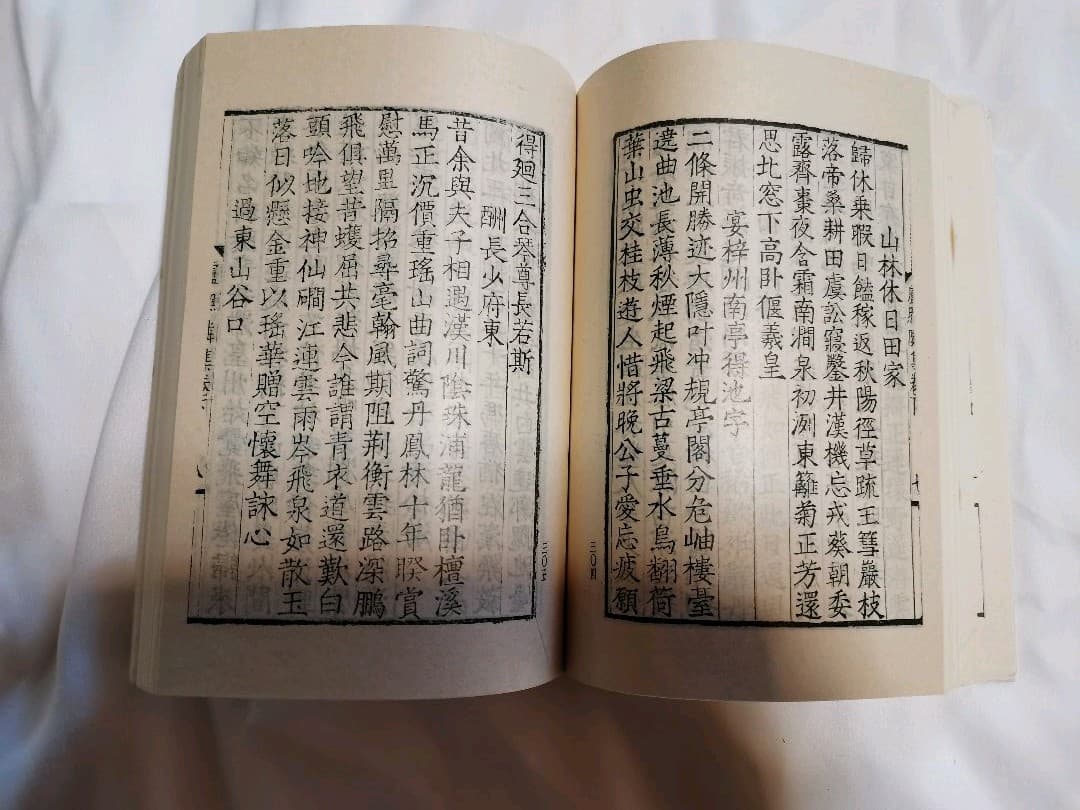 山林休日田家
歸休乗暇日饁稼返秋陽徑草疏王彗巖枝
落帝桑耕田虞訟寢鑿井漢機忘戎葵朝委
露齊棗夜含霜南澗泉初洌東籬菊正芳還
思北窓下高卧偃羲皇
宴梓州南亭得池字
二條開勝迹大隱叶冲規亭閣分危岫樓臺
遶曲池長薄秋煙起飛梁古蔓垂水鳥翻荷
葉山虫交桂枝遊人惜將晚公子愛忘疲願
三〇四
得廻三合琴尊長若斯
酬長少府東
昔余與夫子相遇漢川陰珠浦龍猶卧檀溪
馬正沉價重瑤山曲詞驚丹鳳林十年暌賞
慰萬里隔招尋毫翰風期阻荆衡雲路深鵬
飛俱望昔蠖屈共悲今誰謂青衣道還歎白
頭吟地接神仙磵江連雲雨岑飛泉如散玉
落日似懸金重以瑤華贈空懷舞詠心
過東山谷口
三〇五